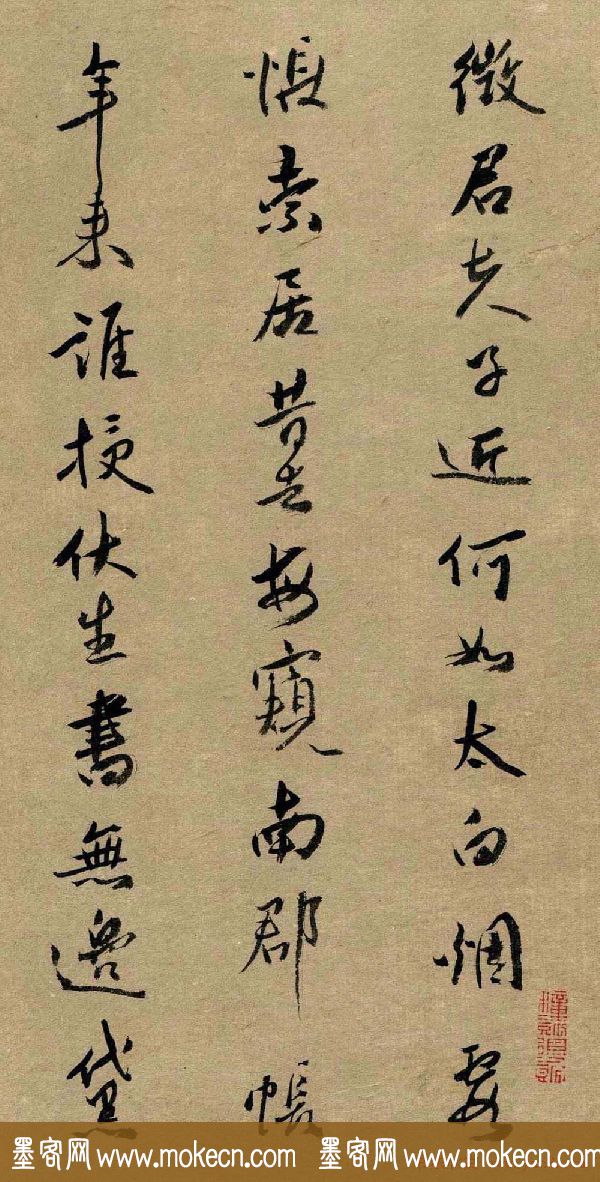 徵君夫子近何如太白烟霞
悵索居昔去每窺南郡帳
年來誰授伏生書無邊黛
墨客网 www.mokecn.com 墨客网 www.mokecn.com